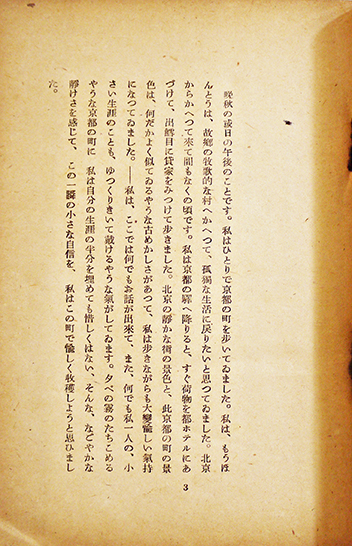 晩秋の或日の午後のことです。私はひとりで京都の町を歩いてゐました。私は、もうほ
んとうは、故鄕の牧歌的な村へかへつて、孤獨な生活に戻りたいと思つてゐました。北京
からかへつて來て間もなくの頃です。私は京都の驛へ降りると、すぐ荷物を都ホテルにあ
づけて、出鱈目に貸家をみつけて歩きました。北京の靜かな街の景色と、此京都の町の景
色は、何だかよく似てゐるやうな古めかしさがあつて、私は歩きながらも大變愉しい氣持
になつてゐました。――私は、ここでは何でもお話が出來て、また、何でも私一人の、小
さい生涯のことも、ゆつくりきいて戴けるやうな氣がしてゐます。夕べの霧のたちこめる
やうな京都の町に 私は自分の生涯の半分を埋めても惜しくはない、そんな、なごやかな
靜けさを感じて、この一瞬の小さな自信を、私はこの町で愉しく牧穫しようと思ひまし
た。
3